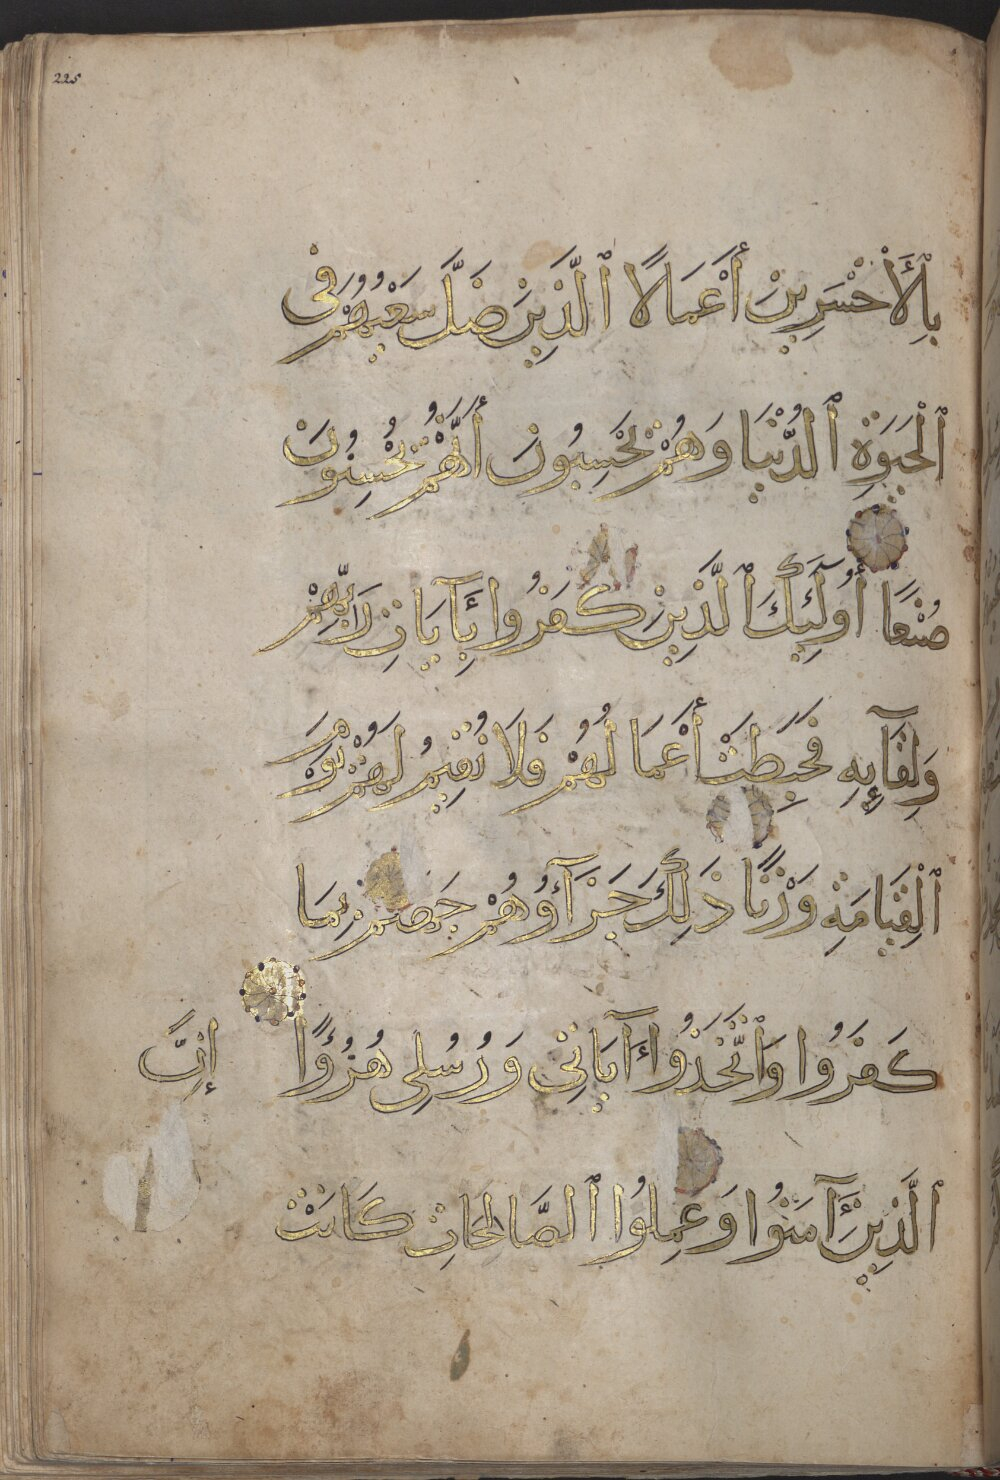 225
بِٱلْأَخْسَرِينَ أَعْمَالًا ٱلَّذِينَ ضَلَّ سَعْيُهُمْ فِي
ٱلْحَيَوٰةِ ٱلدُّنْيَا وَهُمْ يَحْسِبُونَ أَنَّهُمْ يُحْسِنُونَ
صُنْعًا أُولَٰئِكَ ٱلَّذِينَ كَفَرُوا بِآيَاتِ رَبِّهِمْ
وَلِقَآئِهِ فَحَبِطَتْ أَعْمَالُهُمْ فَلَا نُقِيمُ لَهُمْ يَوْمَ
ٱلْقِيَامَةِ وَزْنًا ذَٰلِكَ جَزَآؤُهُمْ جَهَنَّمُ بِمَا
كَفَرُوا وَٱتَّخَذُوٓا آيَاتِي وَرُسُلِي هُزُؤًا إِنَّ
ٱلَّذِينَ آمَنُوا وَعَمِلُوا ٱلصَّالِحَاتِ كَانَتْ